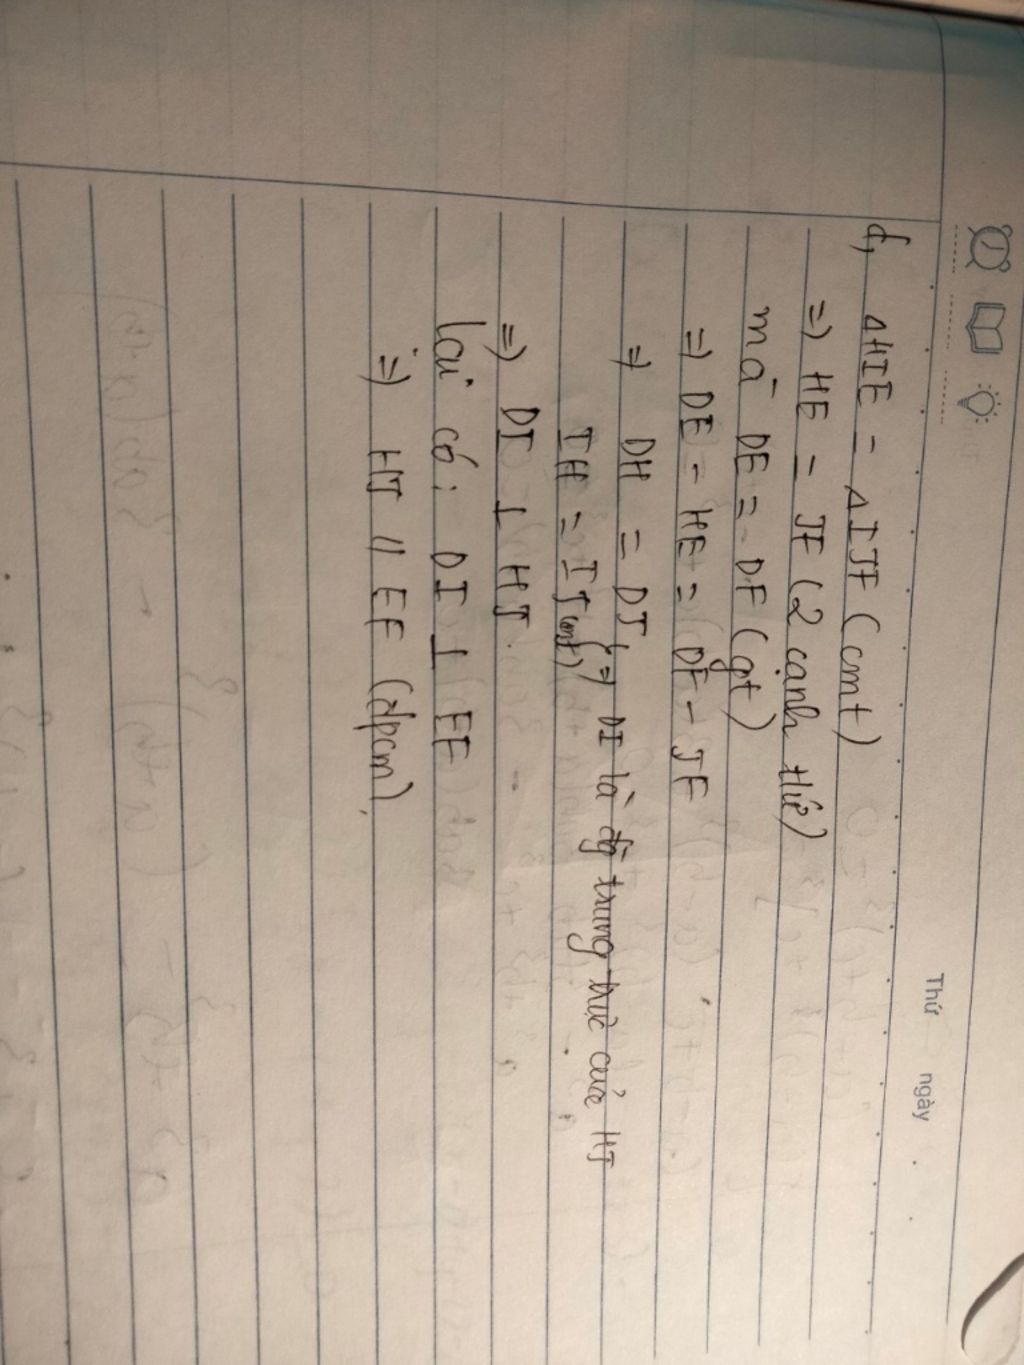 Thứ ngày
d, ΔHIE = ΔIJF (cmt)
=) HE = JF (2 cạnh tứ)
mà DE = DF (gt)
=) DE - HE = DF - JF
=) DH = DJ
IH = IJ (cmt) } =) DI là đg trung trực của HJ
=) DI ⊥ HJ.
lại có: DI ⊥ EF
=) HJ // EF (đpcm)